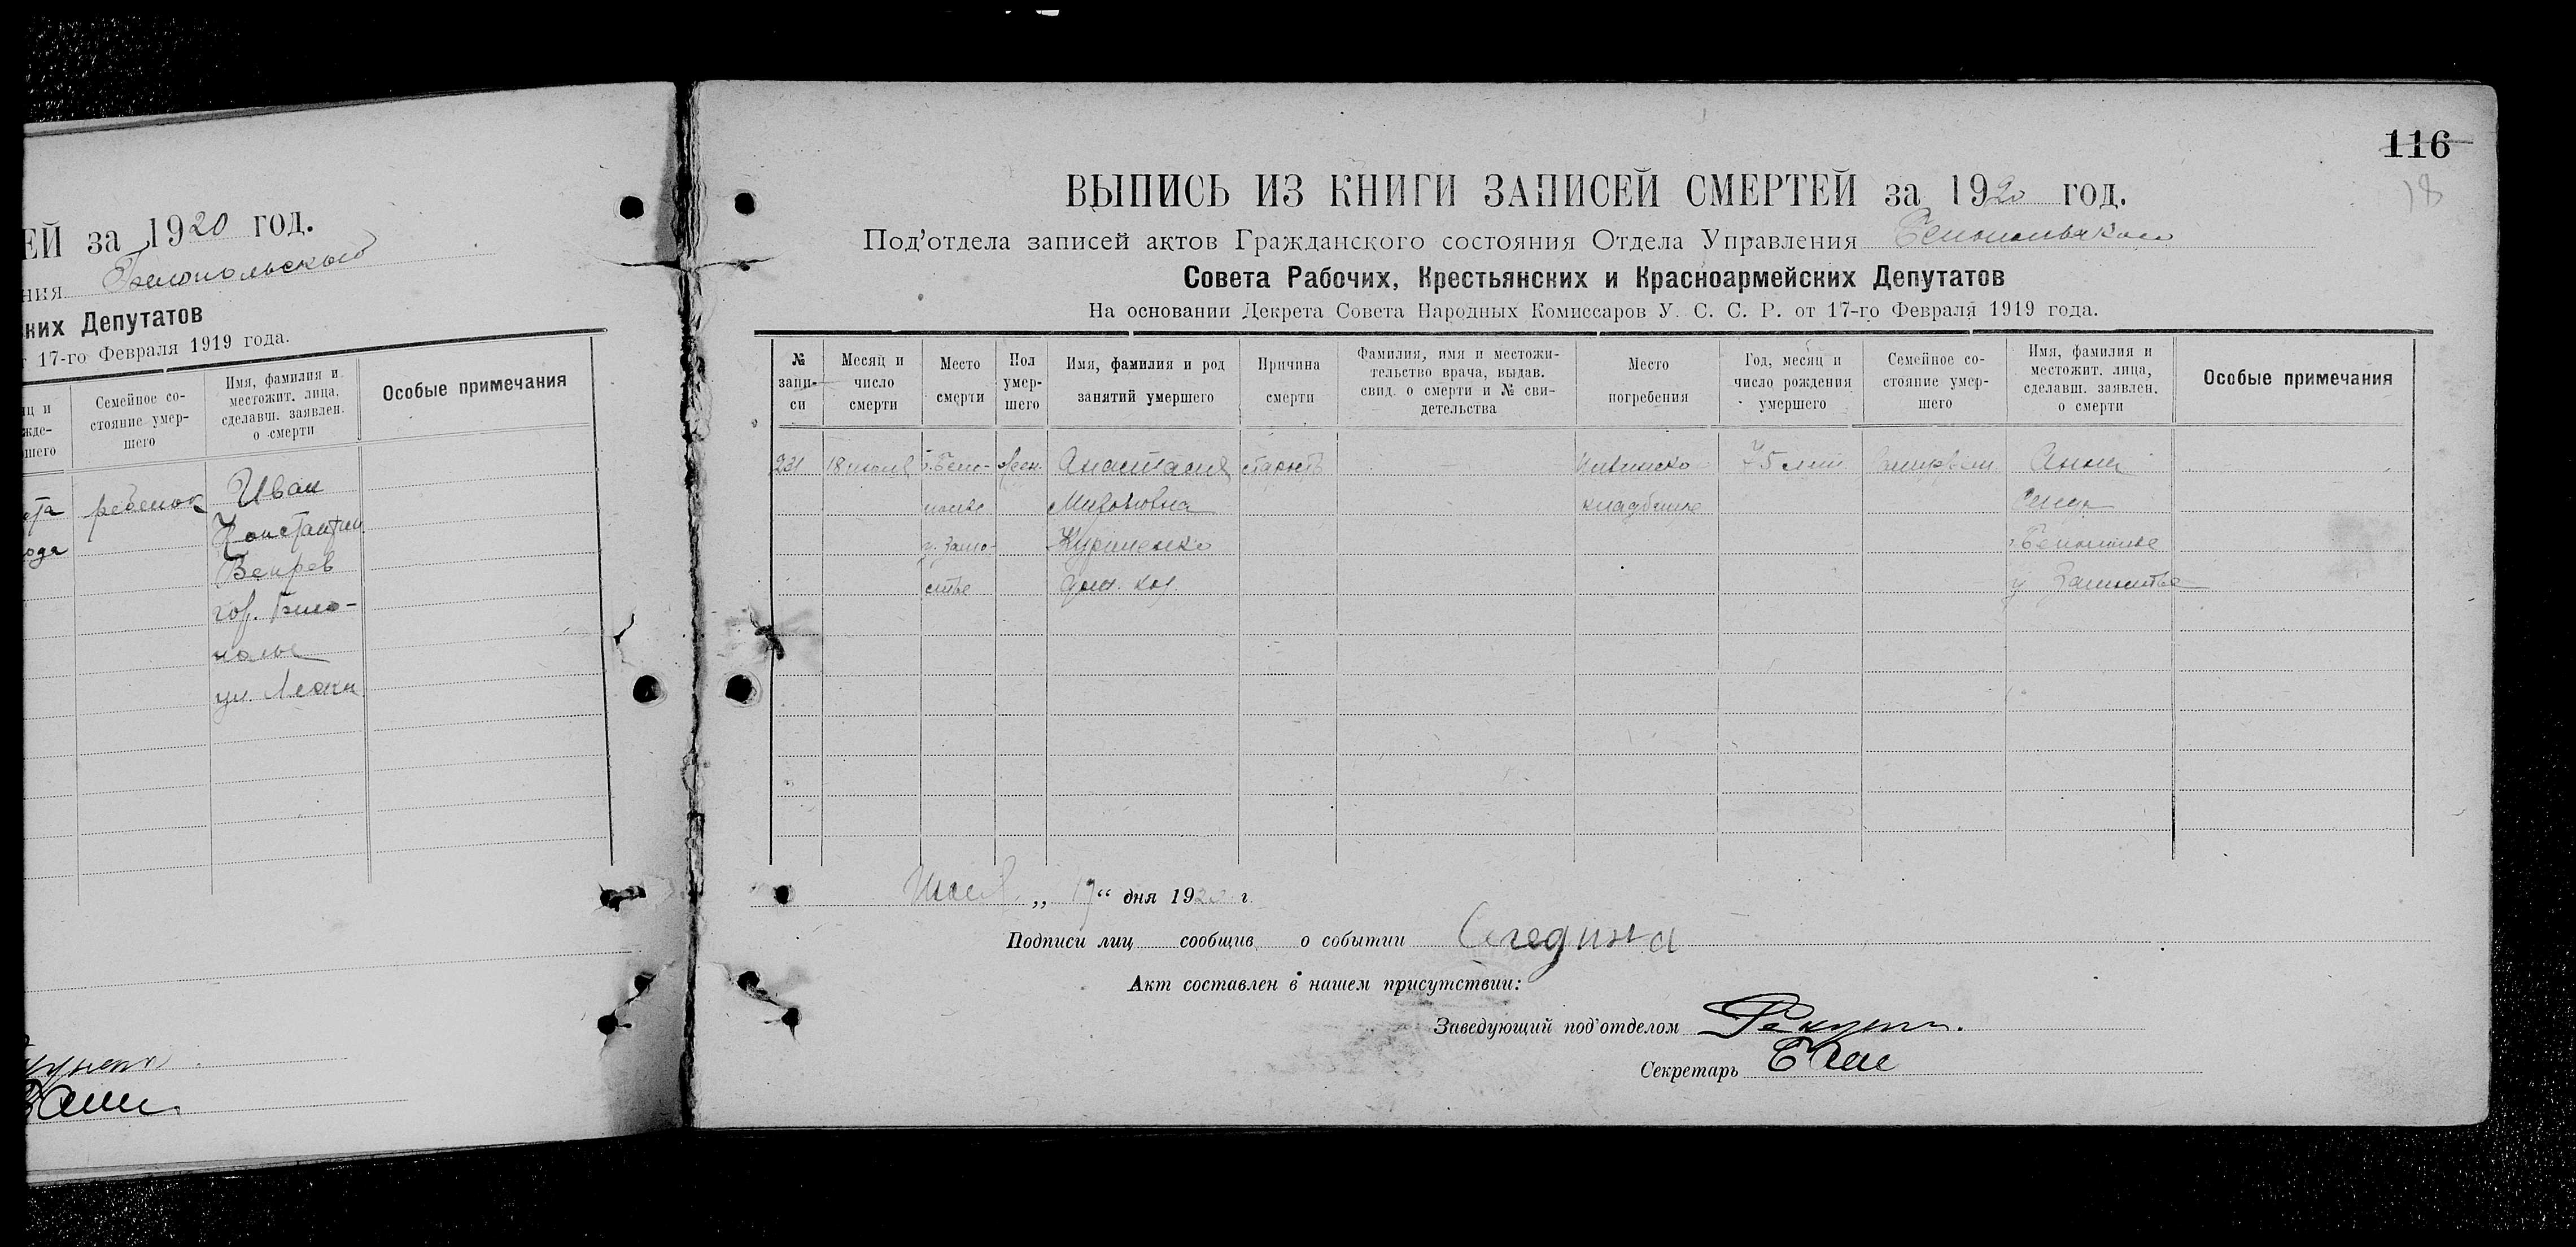 ЕЙ за 1920 год.
ния Белопольского
ких Депутатов
т 17-го Февраля 1919 года.
яц и
жде-
шего
Семейное со-
стояние умер-
шего
Имя, фамилия и
местожит. лица,
сделавш. заявлен.
о смерти
Особые примечания
ета
года
ребенок
Иван
Константин
Вепрев
гор. Бело-
полье
116
18
ВЫПИСЬ ИЗ КНИГИ ЗАПИСЕЙ СМЕРТЕЙ за 1920 год.
Под'отдела записей актов Гражданского состояния Отдела Управления Белопольского
Совета Рабочих, Крестьянских и Красноармейских Депутатов
На основании Декрета Совета Народных Комиссаров У. С. С. Р. от 17-го Февраля 1919 года.
№
запи-
си
Месяц и
число
смерти
Место
смерти
Пол
умер-
шего
Имя, фамилия и род
занятий умершего
Причина
смерти
Фамилия, имя и местожи-
тельство врача, выдав.
свид. о смерти и № сви-
детельства
Место
погребения
Год, месяц и
число рождения
умершего
Семейное со-
стояние умер-
шего
Имя, фамилия и
местожит. лица,
сделавш. заявлен.
о смерти
Особые примечания
231
18 июля
г. Бело-
полье
у. Замо-
стье
жен.
Анастасия
Мироновна
Куриленко
дом. хоз.
старость
кладбище
75 лет
Анна
Белополье
у Замостье
Июля „ 19 “ дня 1920 г.
Подписи лиц сообщив о событии
Акт составлен в нашем присутствии:
Заведующий под'отделом
Секретарь